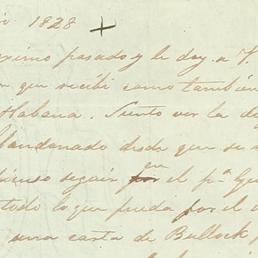 1828 +
ximo pasado y le doy a V.
en que recibi como tambien
Habana. Siento ver la d
abandonado desde que se
pienso seguir por en el pr.
todo lo que pueda por el
una carta de Bullock